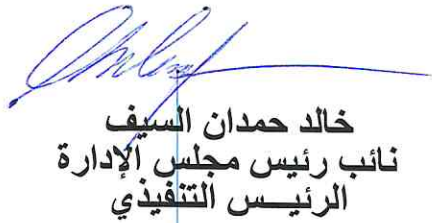 خالد حمدان السيف
نائب رئيس مجلس الإدارة
الرئيــس التنفيذي